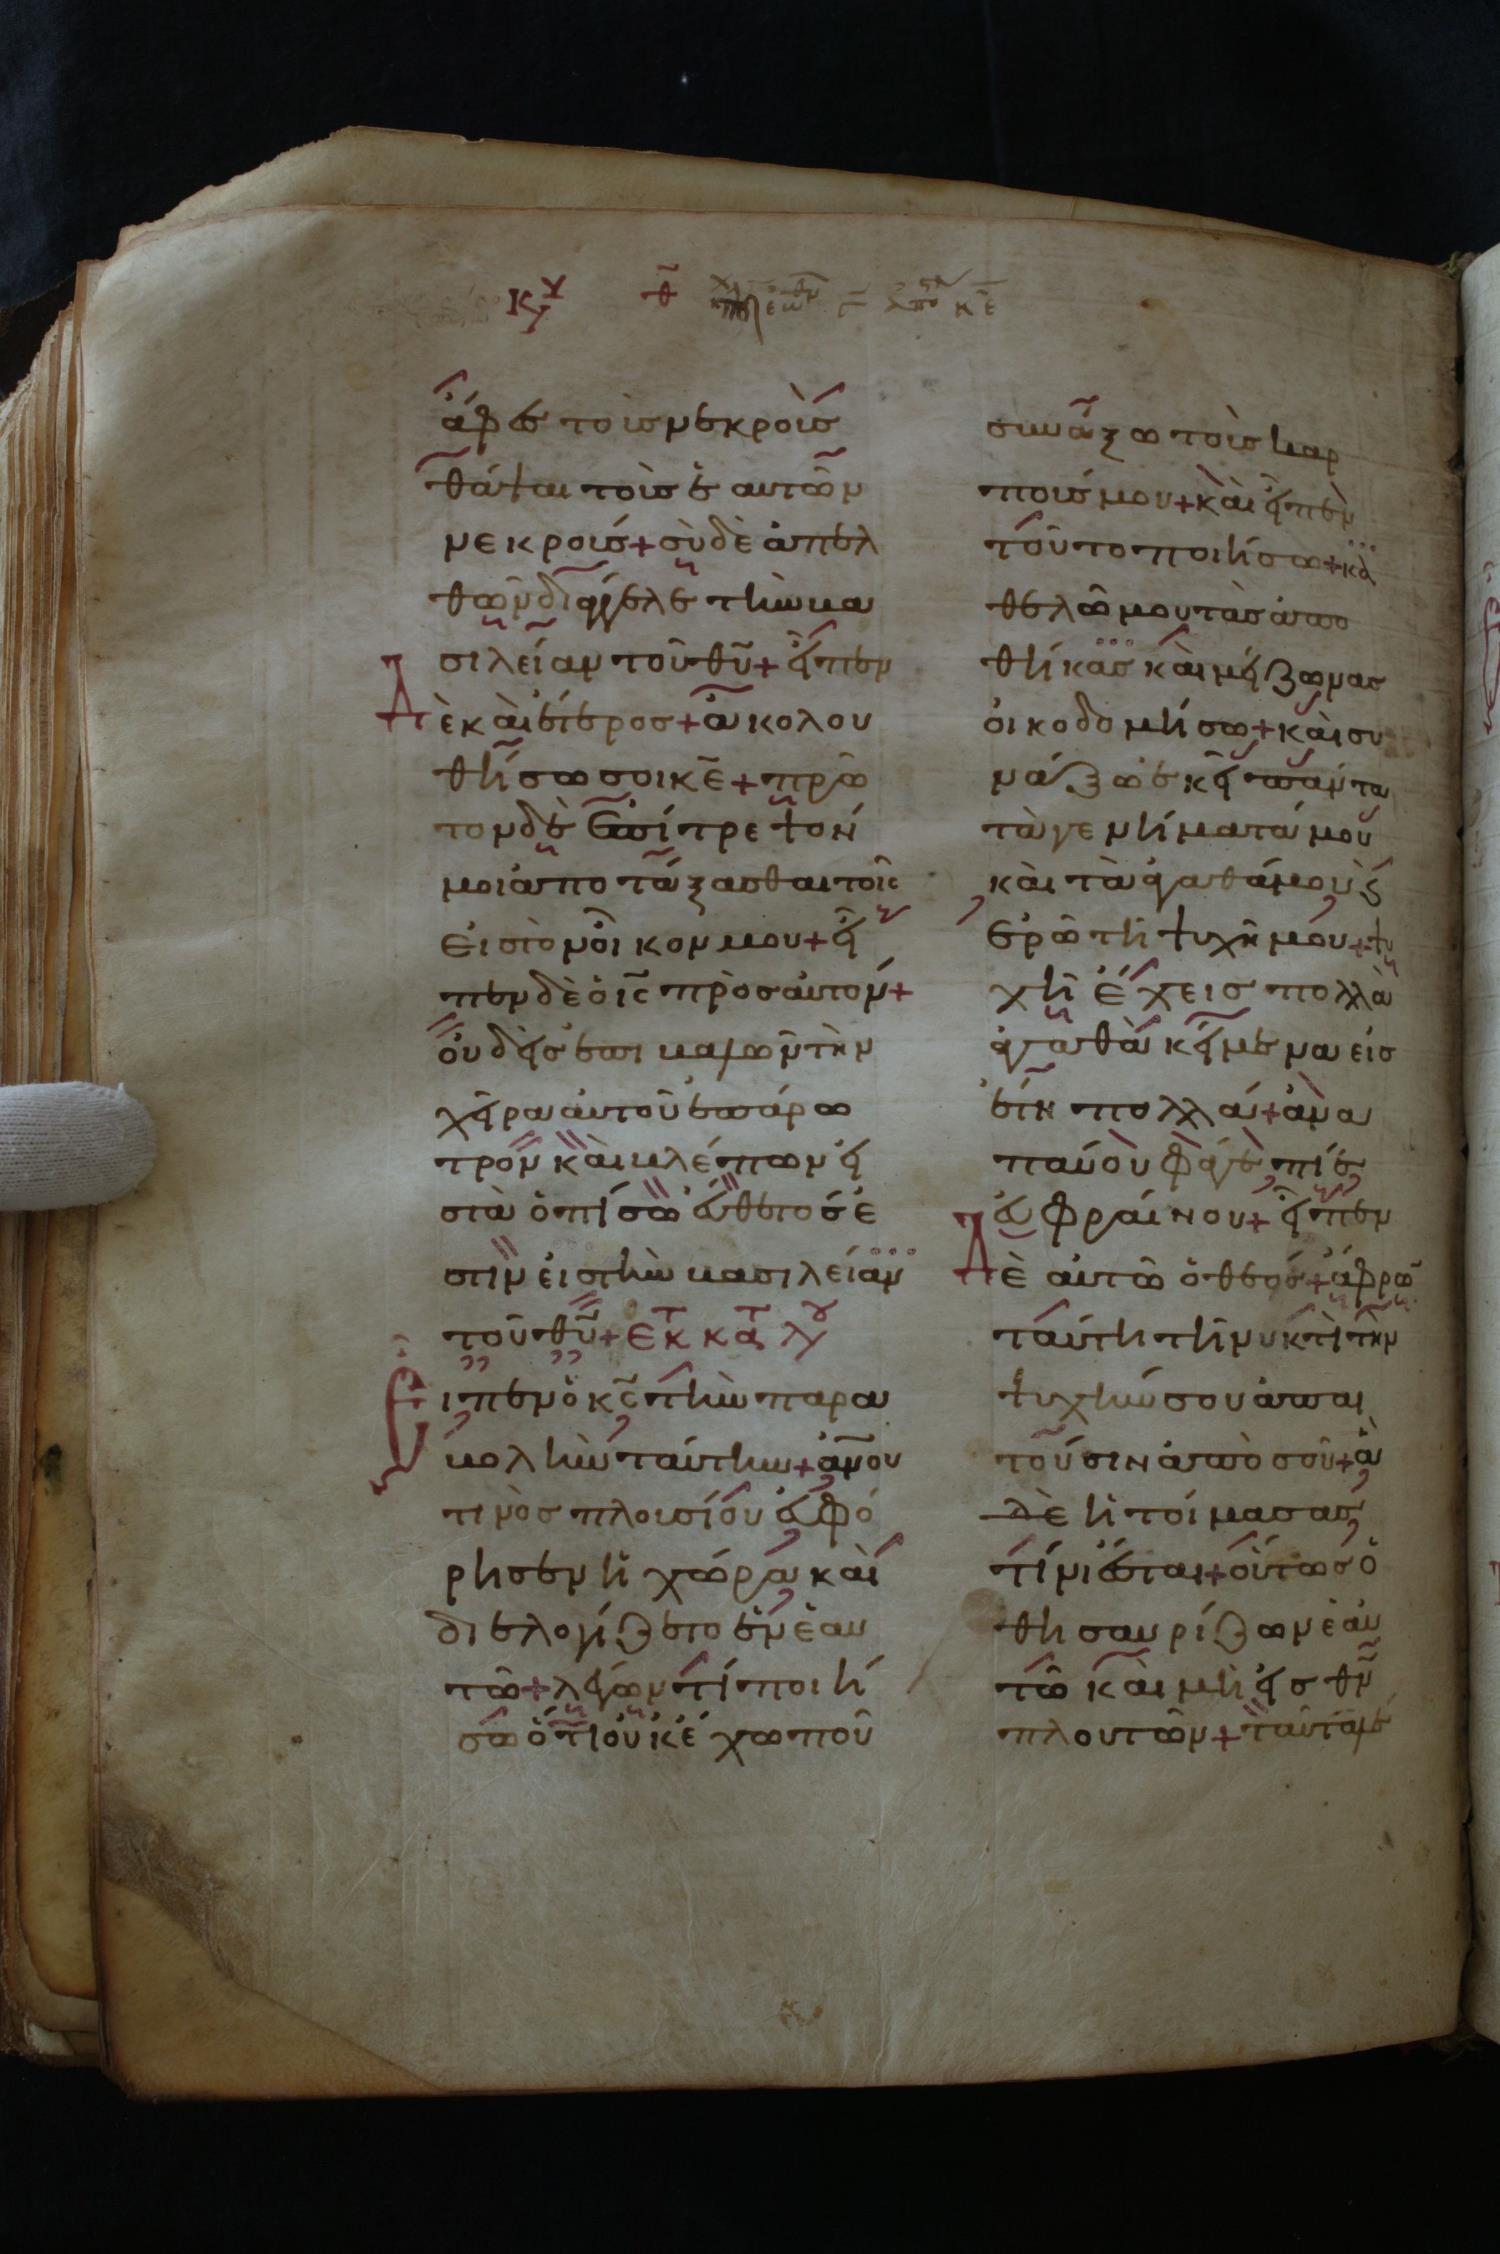 κυ θ
ἄφες τοὺς νεκροὺς
θάψαι τοὺς ἑαυτῶν
νεκρούς + σὺ δὲ ἀπελ
θὼν διάγγελε τὴν βα
σιλείαν τοῦ θυ + εἶπεν
Δὲ καὶ ἕτερος + ἀκολου
θήσω σοι κε + πρῶ
τον δὲ ἐπίτρεψόν
μοι ἀποτάξασθαι τοῖς
εἰς τὸν οἶκον μου + εἶ
πεν δὲ ὁ ις πρὸς αὐτόν +
οὐδεὶς ἐπιβαλὼν τὴν
χεῖρα αὐτοῦ ἐπ' ἄρο
τρον καὶ βλέπων εἰ
ς τὰ ὀπίσω εὔθετος ἐ
στιν εἰς τὴν βασιλείαν
τοῦ θυ + εκ κατ λου
Εἶπεν ὁ κς τὴν παρα
βολὴν ταύτην + ἀνου
τινὸς πλουσίου εὐφό
ρησεν ἡ χώρα καὶ
διελογίζετο ἐν ἑαυ
τῷ + λέγων τί ποιή
σω ὅτι οὐκ ἔχω ποῦ
συνάξω τοὺς καρ
πούς μου + καὶ εἶπεν
τοῦτο ποιήσω + κα
θελῶ μου τὰς ἀπο
θήκας καὶ μείζωνας
οἰκοδομήσω + καὶ συ
νάξω ἐκεῖ πάντα
τὰ γενήματά μου
καὶ τὰ ἀγαθά μου κ
ἐρῶ τῇ ψυχῇ μου + ψυ
χὴ ἔχεις πολλὰ
ἀγαθὰ κείμενα εἰς
ἔτη πολλά + ἀνα
παύου φάγε πίε
εὐφραίνου + εἶπεν
Δὲ αὐτῷ ὁ θεός + ἄφρω
ταύτη τῇ νυκτὶ τὴν
ψυχήν σου ἀπαι
τοῦσιν ἀπὸ σοῦ + ἃ
δὲ ἡτοίμασας
τίνι ἔσται + οὕτως ὁ
θησαυρίζων ἑαυ
τῷ καὶ μὴ εἰς θν
πλουτῶν + ταῦτα